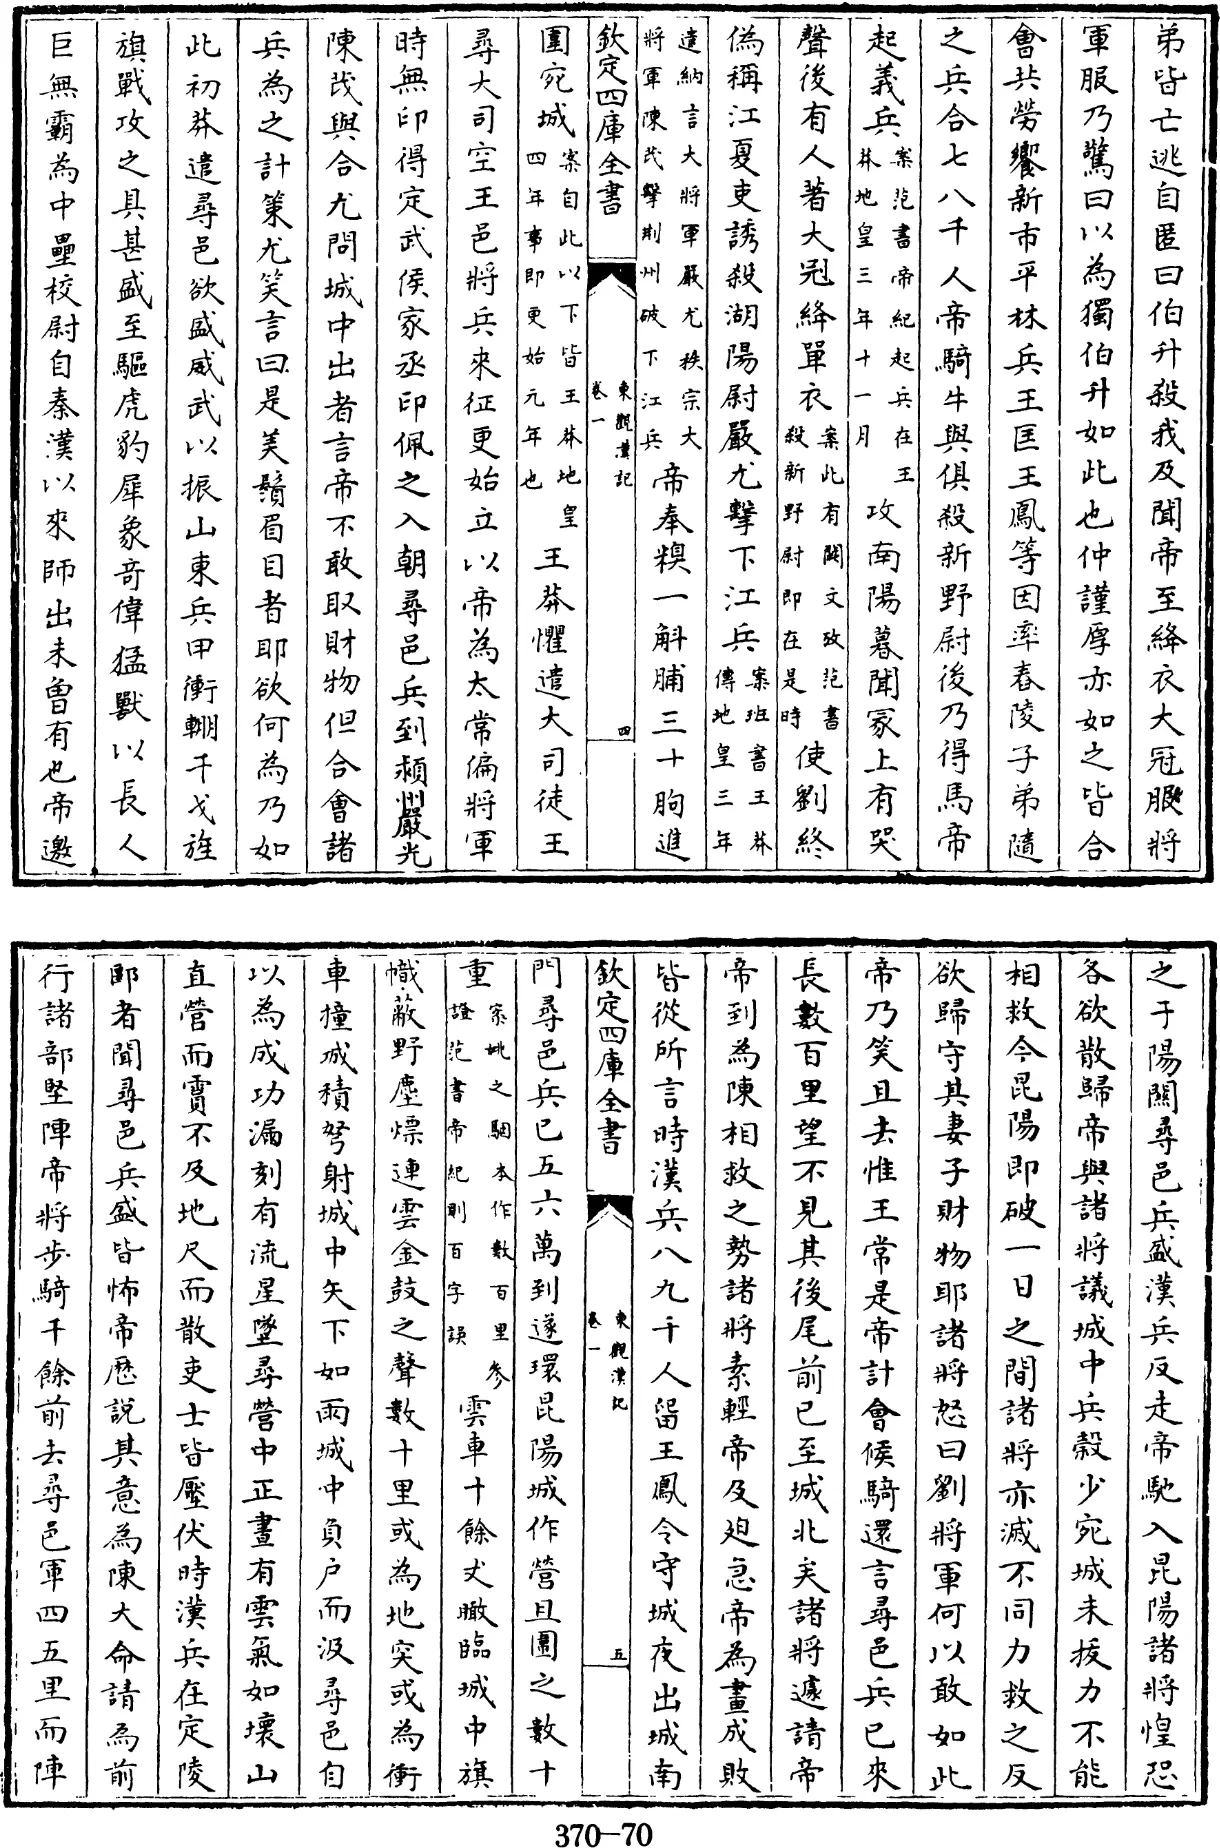 弟皆亡逃自匿曰伯升殺我及聞帝至絳衣大冠服將
軍服乃驚曰以為獨伯升如此也仲謹厚亦如之皆合
會共勞饗新市平林兵王匡王鳳等因率舂陵子弟隨
之兵合七八千人帝騎牛與俱殺新野尉後乃得馬帝
起義兵案范書帝紀起兵在王莽地皇三年十一月攻南陽暮聞冢上有哭
聲後有人著大冠絳單衣案此有闕文攷范書殺新野尉即在是時使劉終
偽稱江夏吏誘殺湖陽尉嚴尤擊下江兵案班書王莽傳地皇三年
遣納言大將軍嚴尤秩宗大將軍陳茂擊荆州破下江兵帝奉糗一斛脯三十朐進
欽定四庫全書
東觀漢記
卷一
四
圍宛城案自此以下皆王莽地皇四年事即更始元年也王莽懼遣大司徒王
尋大司空王邑將兵來征更始立以帝為太常偏將軍
時無印得定武侯家丞印佩之入朝尋邑兵到潁川嚴尤
陳茂與合尤問城中出者言帝不敢取財物但合會諸
兵為之計策尤笑言曰是美鬚眉目者耶欲何為乃如
此初莽遣尋邑欲盛威武以振山東兵甲衝輣干戈旌
旗戰攻之具甚盛至驅虎豹犀象奇偉猛獸以長人
巨無霸為中壘校尉自秦漢以來師出未曽有也帝邀
之于陽關尋邑兵盛漢兵反走帝馳入昆陽諸將惶恐
各欲散歸帝與諸將議城中兵榖少宛城未拔力不能
相救今昆陽即破一日之間諸將亦滅不同力救之反
欲歸守其妻子財物耶諸將怒曰劉將軍何以敢如此
帝乃笑且去惟王常是帝計會候騎還言尋邑兵已來
長數百里望不見其後尾前已至城北矣諸將遽請帝
帝到為陳相救之勢諸將素輕帝及廹急帝為畫成敗
皆從所言時漢兵八九千人留王鳳令守城夜出城南
欽定四庫全書
東觀漢記
卷一
五
門尋邑兵已五六萬到遂環昆陽城作營且圍之數十
重案姚之駰本作數百里參證范書帝紀則百字誤雲車十餘丈瞰臨城中旗
幟蔽野塵熛連雲金鼓之聲數十里或為地突或為衝
車撞城積弩射城中矢下如雨城中負戶而汲尋邑自
以為成功漏刻有流星墜尋營中正晝有雲氣如壞山
直營而霣不及地尺而散吏士皆壓伏時漢兵在定陵
郾者聞尋邑兵盛皆怖帝歷說其意為陳大命請為前
行諸部堅陣帝將步騎千餘前去尋邑軍四五里而陣
370—70